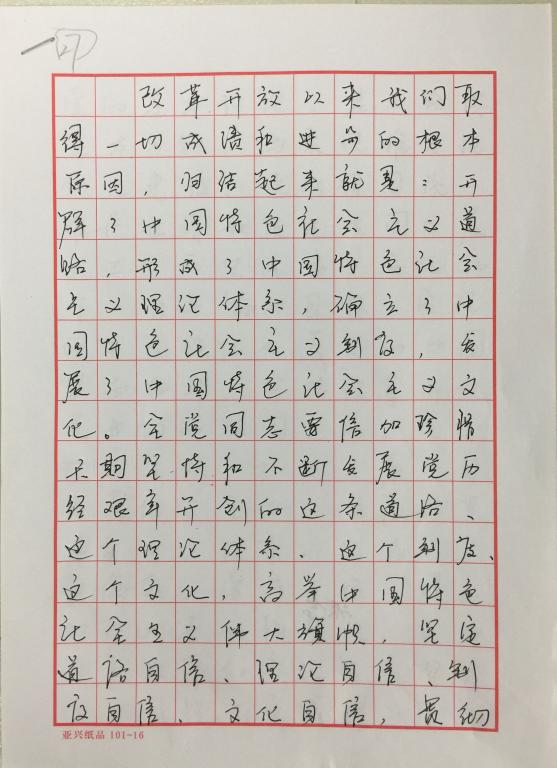 改革开放以来我们取
得一切成绩和进步的根本
原因，归结起来就是：开
辟了中国特色社会主义道
路，形成了中国特色社会
主义理论体系，确立了中
国特色社会主义制度，发
展了中国特色社会主义文
化。全党同志要倍加珍惜
长期坚持和不断发展党历
经艰辛开创的这条道路、
这个理论体系、这个制度、
这个文化，高举中国特色
社会主义伟大旗帜，坚定
道路自信、理论自信、制
度自信、文化自信，贯彻
亚兴纸品 101-16